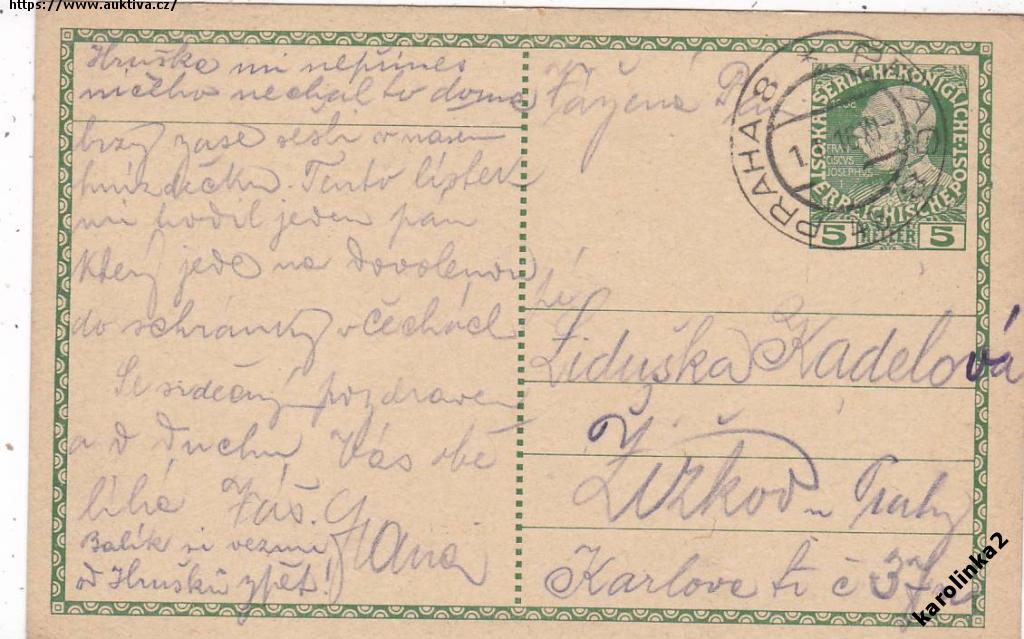 https://www.auktiva.cz/
Hruška mi nepřines
ničeho nechal to doma
brzy zase sešli v našem
hnízdečku. Tento lístek
mi hodil jeden pán
který jede na dovolenou
do schránky v Čechách
Se srdečným pozdravem
a v duchu Vás obě
líbá Váš
Balík si vezmi
od Hrušků zpět!
Vážená
PRAHA 8
KAISERLICHEKÖNIGLICHE
ÖSTERREICHISCHE POST
FRAN
CISCVS
JOSEPHVS
I
5 HELLER 5
Liduška Kadelová
Žižkov u Prahy
Karlova tř. č 37
karolinka2